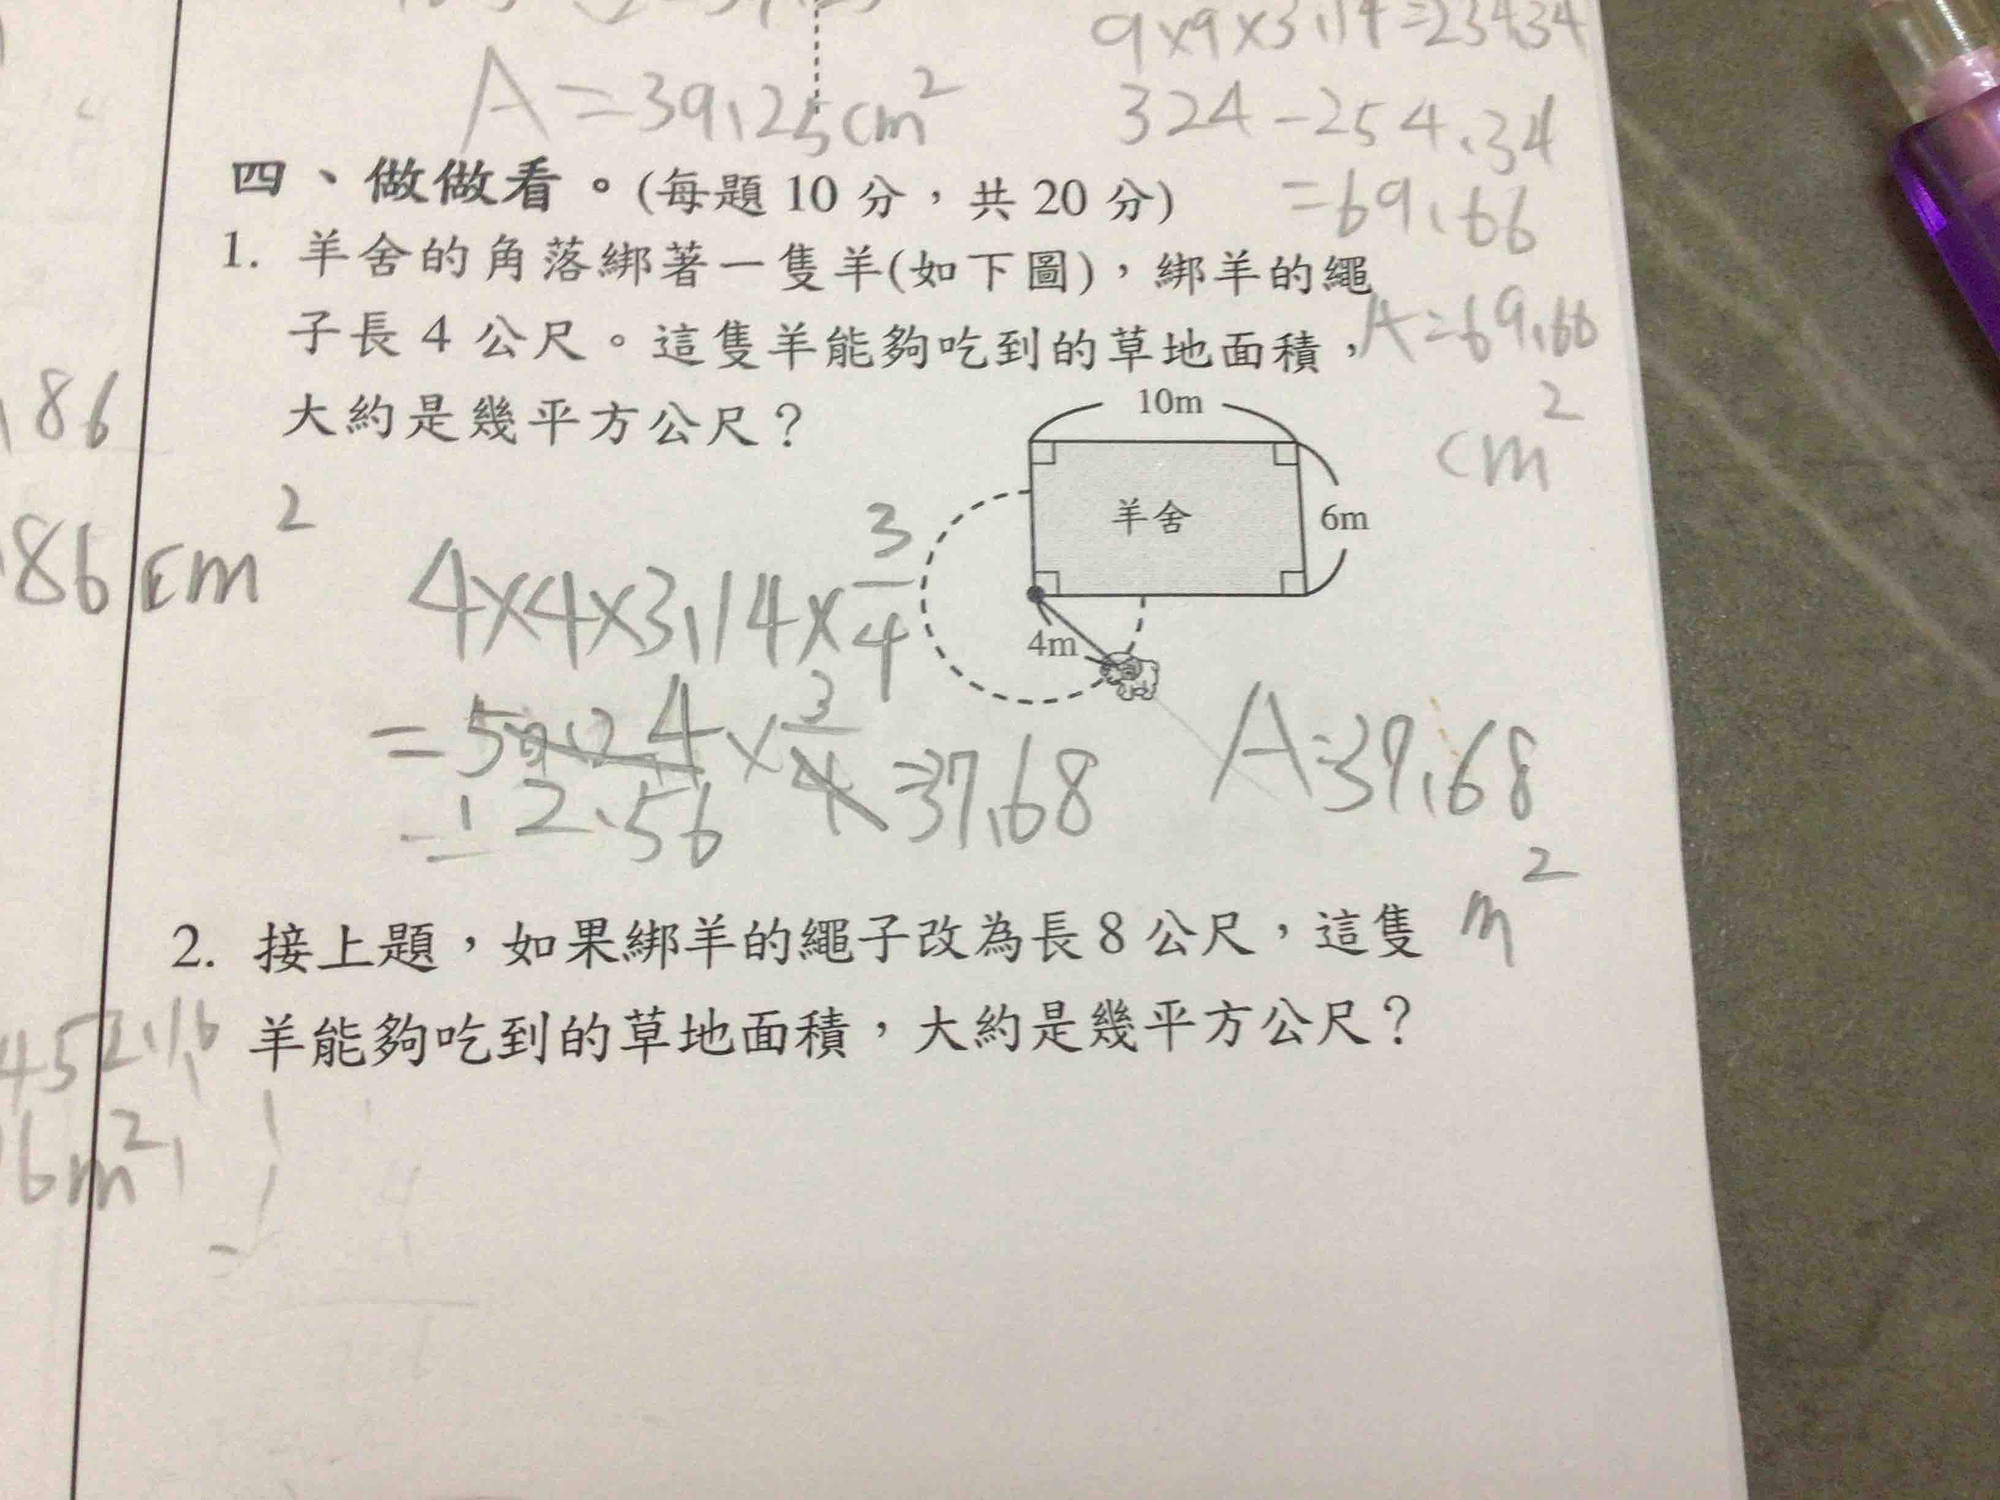 A=39.25cm²
9×9×3.14=254.34
324-254.34
=69.66
A=69.66
cm²
四、做做看。(每題 10 分，共 20 分)
1. 羊舍的角落綁著一隻羊(如下圖)，綁羊的繩
子長 4 公尺。這隻羊能夠吃到的草地面積，
大約是幾平方公尺？
10m
羊舍
6m
4m
86
86cm²
4×4×3.14×3/4
=50.24×3/4=37.68
12.56
A=37.68
m²
2. 接上題，如果綁羊的繩子改為長 8 公尺，這隻
羊能夠吃到的草地面積，大約是幾平方公尺？
452.16
16m²